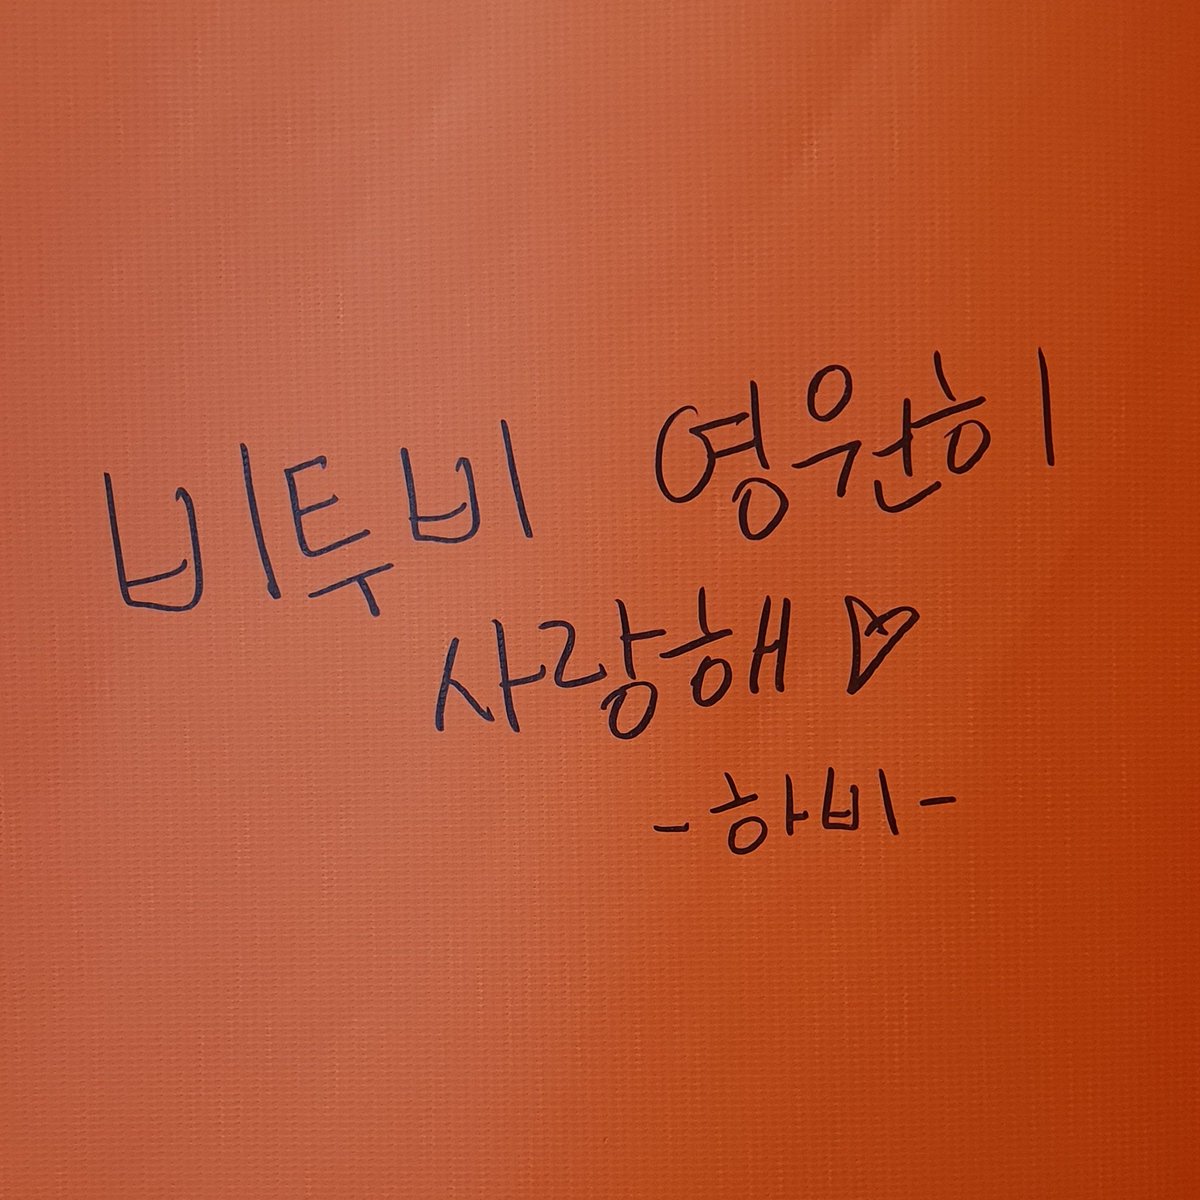 비투비 영원히
사랑해 ♡
-하비-